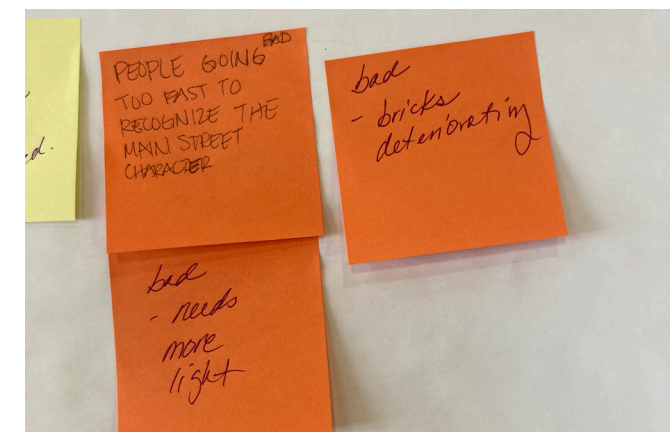 ed.
BAD
PEOPLE GOING
TOO FAST TO
RECOGNIZE THE
MAIN STREET
CHARACTER
bad
- bricks
deteriorating
bad
- needs
more
light